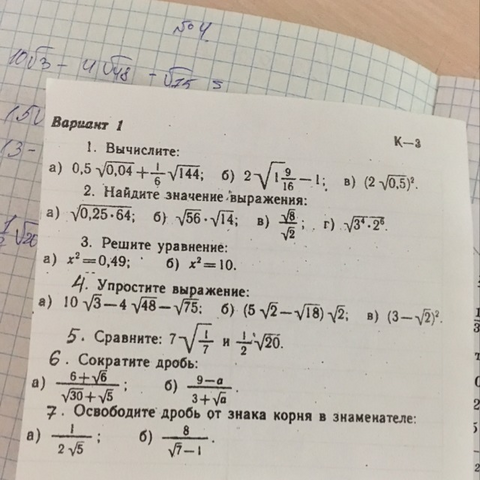 № 4
10√3 - 4√48 - √75 =
Вариант 1
К—3
1. Вычислите:
а) 0,5 √0,04 + 1/6 √144; б) 2 √(1 9/16) — 1; в) (2 √0,5)².
2. Найдите значение выражения:
а) √(0,25·64); б) √56·√14; в) √8/√2; г) √(3⁴·2⁶).
3. Решите уравнение:
а) x² = 0,49; б) x² = 10.
4. Упростите выражение:
а) 10 √3 — 4 √48 — √75; б) (5 √2 — √18) √2; в) (3 — √2)².
5. Сравните: 7 √(1/7) и 1/2 √20.
6. Сократите дробь:
а) (6 + √6)/(√30 + √5); б) (9 — а)/(3 + √а).
7. Освободите дробь от знака корня в знаменателе:
а) 1/(2 √5); б) 8/(√7 — 1).